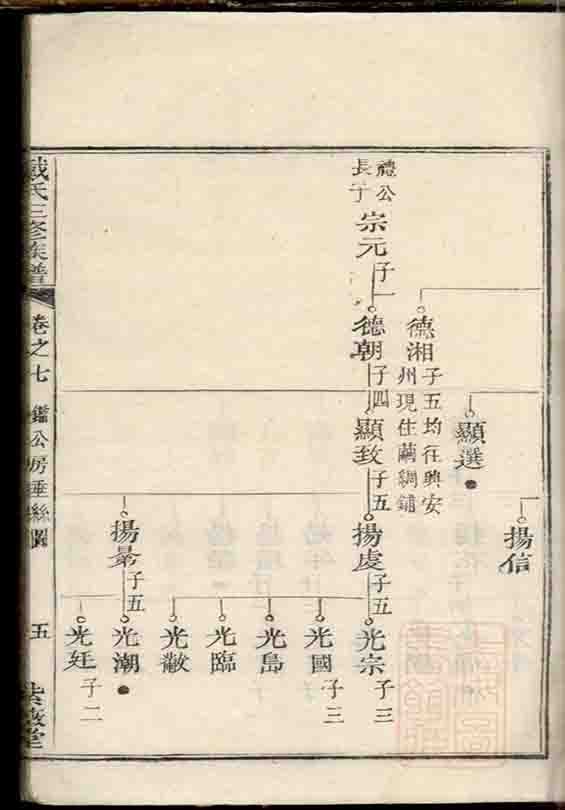 禮公
長子
宗元子一
德湘子五均往興安
州現住繭綢鋪
德朝子四
顯選
顯致子五
揚信
揚處子五
揚景子五
光宗子三
光國子三
光島
光臨
光敝
光潮
光廷子二
戴氏三修族譜
卷之七
鑑公房垂絲圖
五